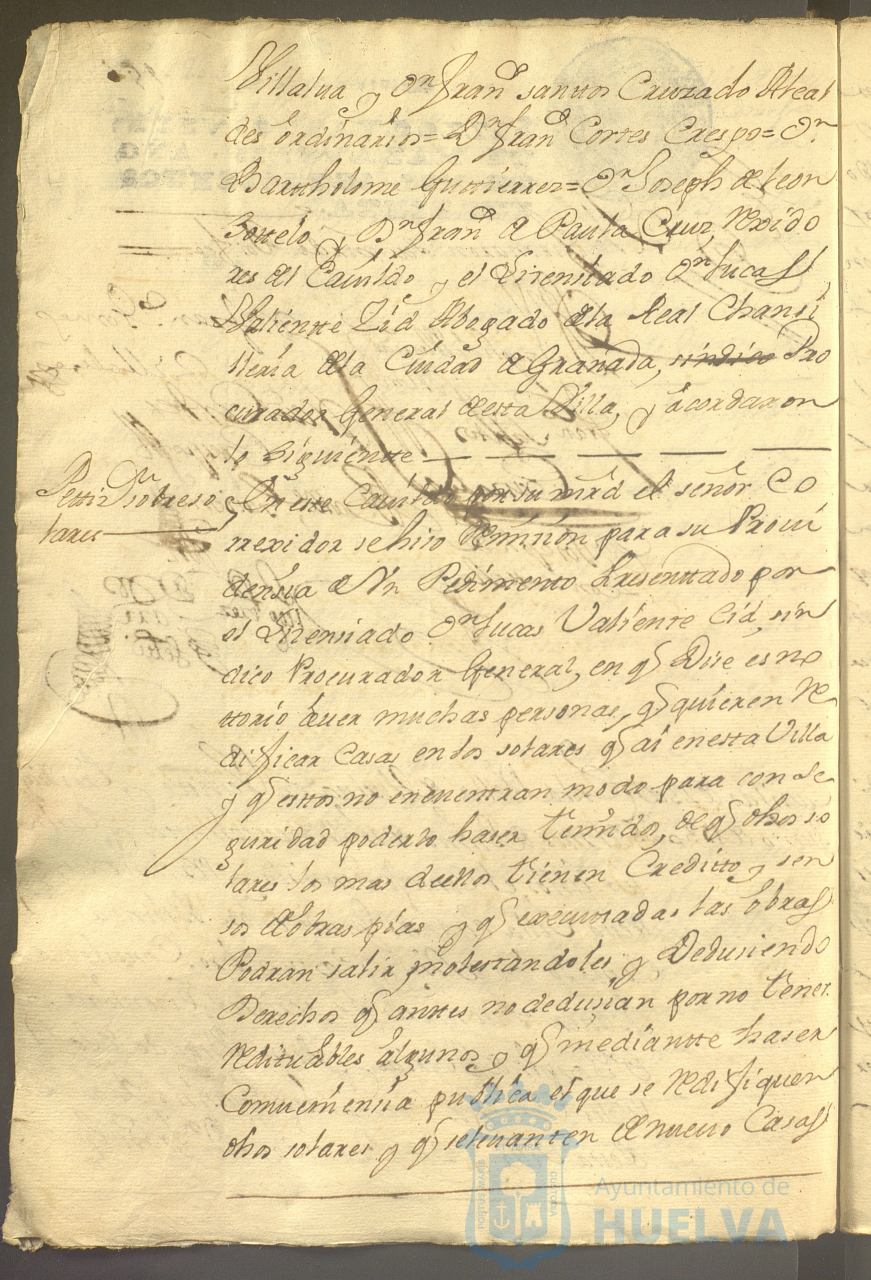 Villalua y Dn Franco santtos Cruzado Alcal
des ordinarios= Dn Franco Cortes Crespo= Dn
Bartholome Guttierrez= Dn Joseph de Leon
Sottelo, y Dn Franco de Paula Cruz Rexido
res del Cauildo y el Lizenciado Dn Lucas
Valientte Zid Abogado dela Real Chansi
lleria dela Ciudad de Granada, sindico Pro
curador General desta Villa, y acordaron
lo siguientte
Pettizn sobre so
lares
En este Cauildo por su mrd el señor Co
rrexidor se hiso Remision para su Proui
densia de Vn Pedimento Presenttado por
el Lizensiado Dn Lucas Valiente Cid, sin
dico Procurador General, en q Dise es no
ttorio auer muchas personas, q quieren Re
dificar Casas en los solares q ai en esta Villa
y q esttos no encuentran modo para con se
guridad poderlo haser temidos, de q dhos so
lares los mas de ellos tienen Creditto, y sen
sos de obras pias y q executadas las obras
Podran salir molestandoles y Dedusiendo
Derechos q antes no dedusian por no tener
redituables algunos, y q mediantte haser
Comueniensia publica el que se Redifiquen
dhos solares y q se leuanten de nueuo Casas
Ayuntamiento de
HUELVA